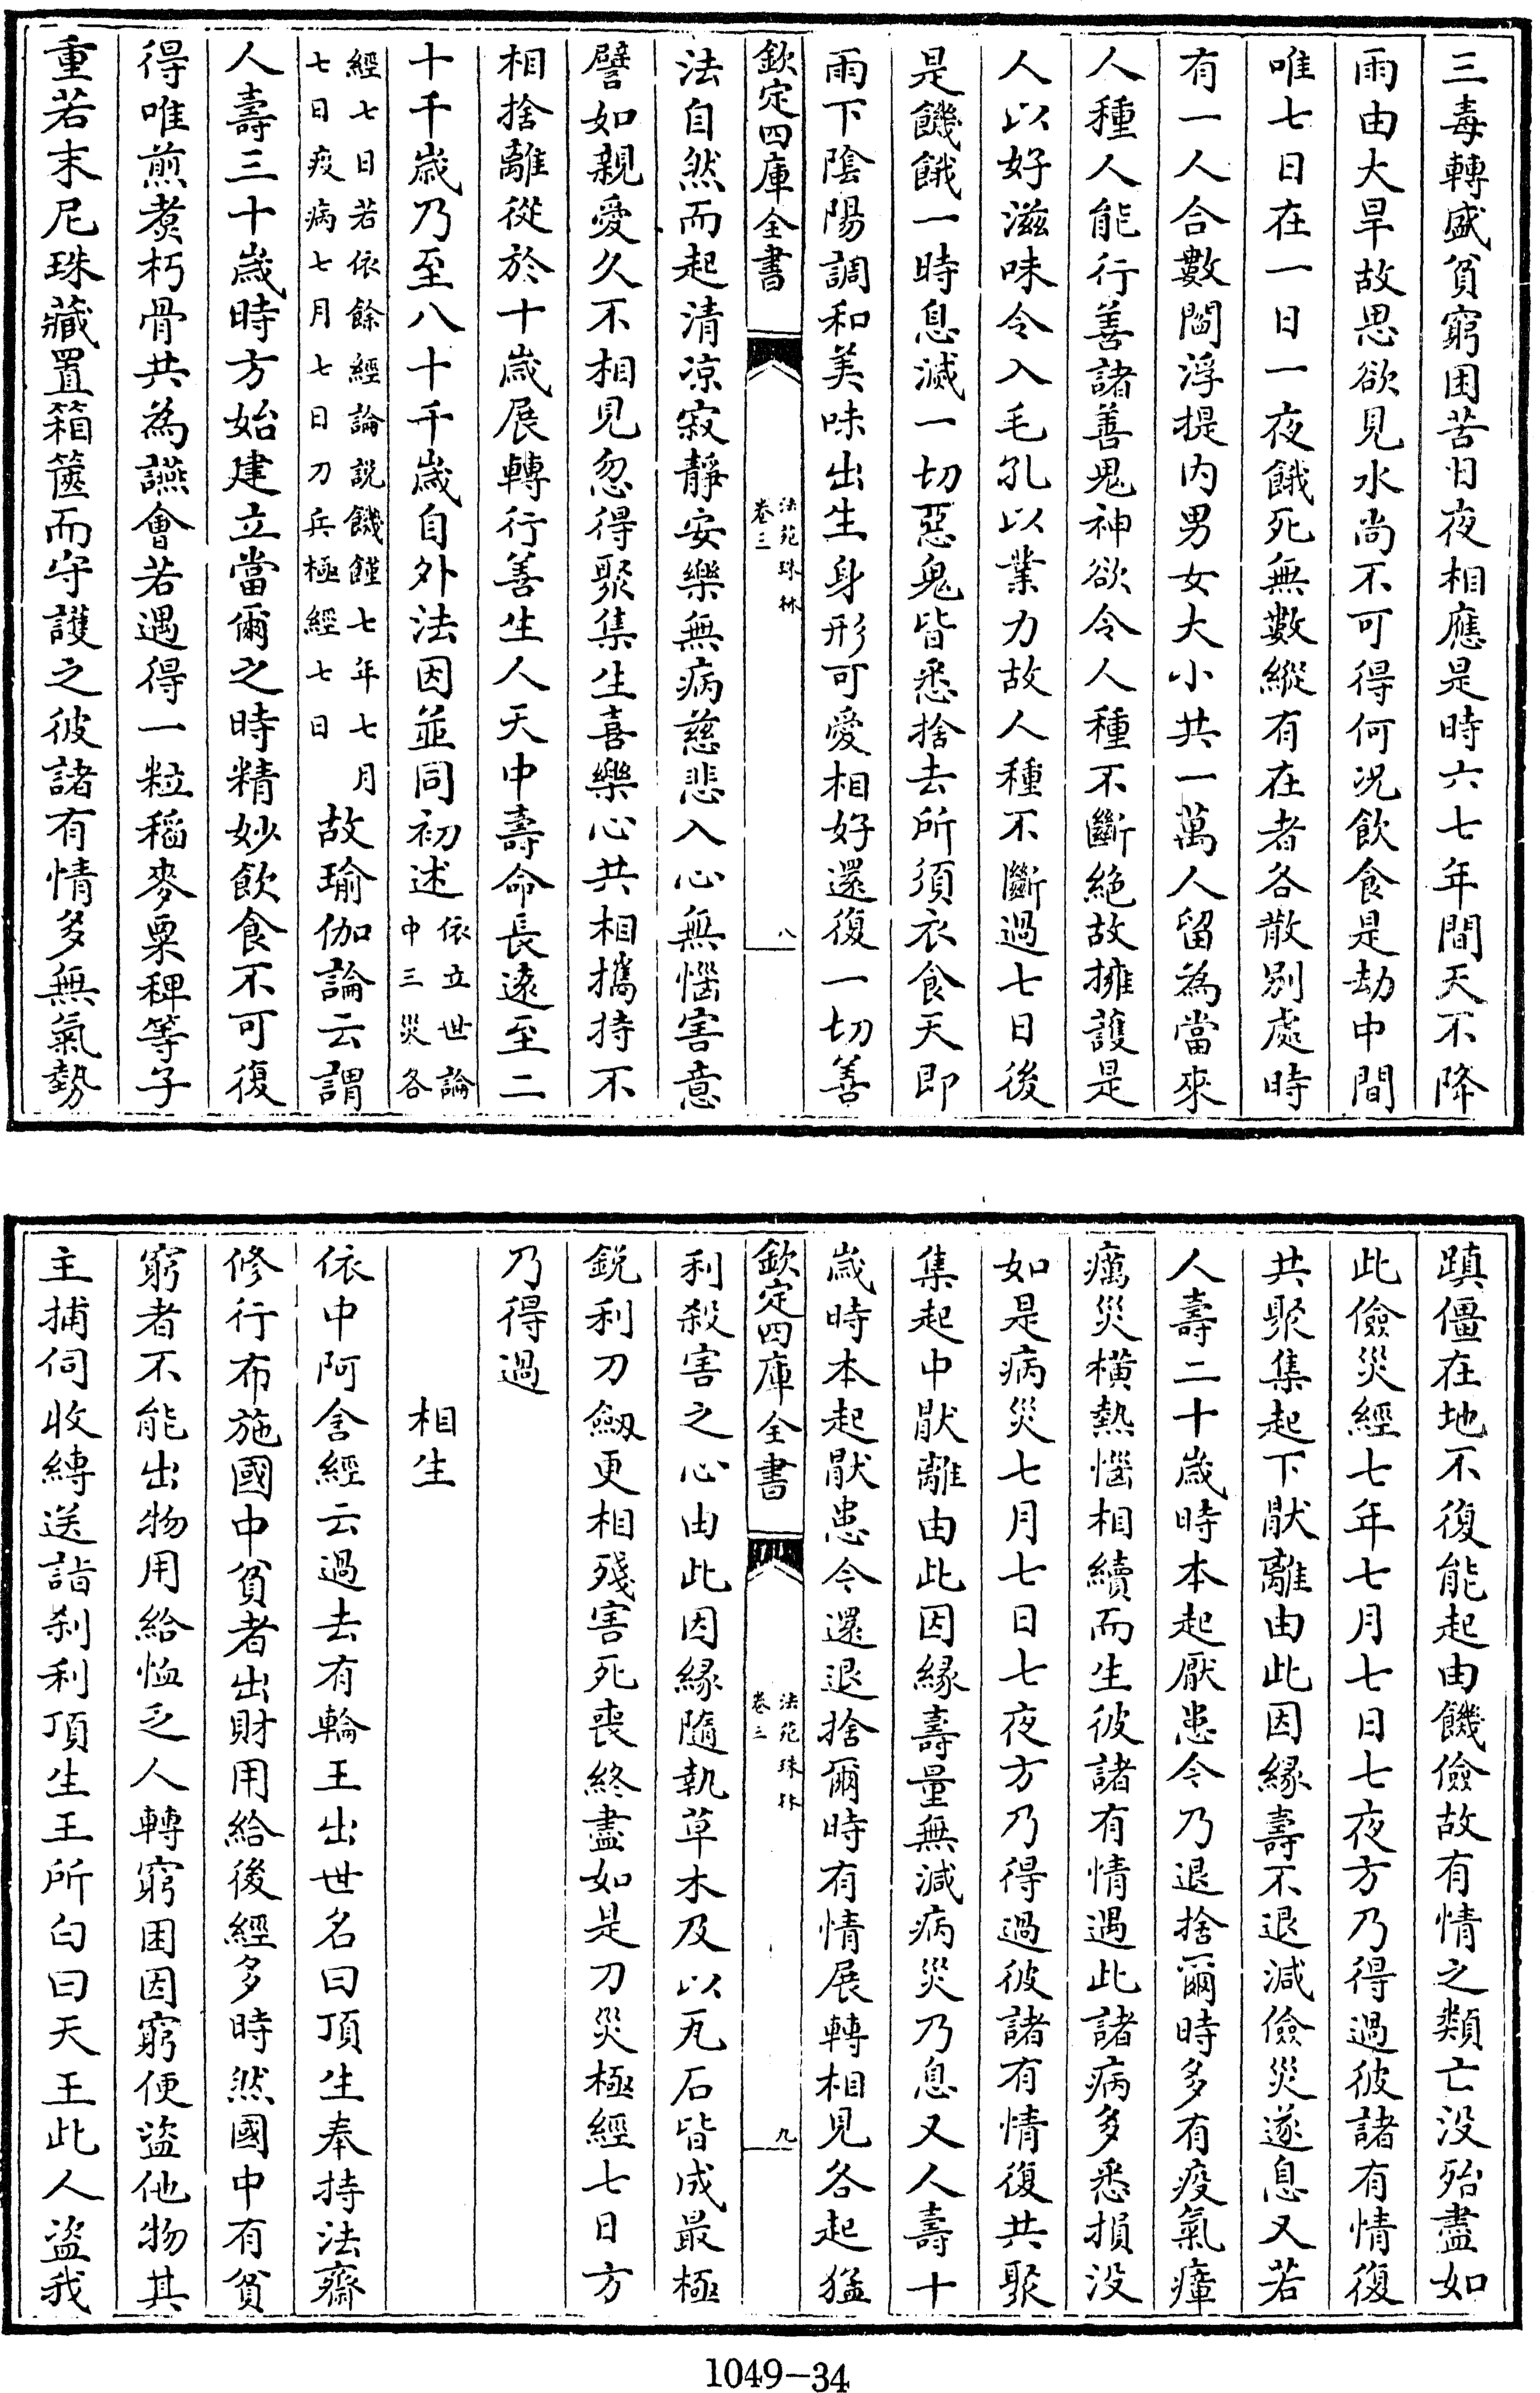 三毒轉盛貧窮困苦日夜相應是時六七年間天不降
雨由大旱故思欲見水尚不可得何况飲食是劫中間
唯七日在一日一夜餓死無數縱有在者各散别處時
有一人合數閻浮提内男女大小共一萬人留為當來
人種人能行善諸善鬼神欲令人種不斷絶故擁護是
人以好滋味令入毛孔以業力故人種不斷過七日後
是饑餓一時息滅一切惡鬼皆悉捨去所須衣食天即
雨下隂陽調和美味出生身形可愛相好還復一切善
欽定四庫全書
法苑珠林
卷三
八
法自然而起清凉寂靜安樂無病慈悲入心無惱害意
譬如親愛久不相見忽得聚集生喜樂心共相攜持不
相捨離從於十歳展轉行善生人天中壽命長遠至二
十千歳乃至八十千歳自外法因並同初述依立世論
中三災各
經七日若依餘經論説饑饉七年七月
七日疫病七月七日刀兵極經七日
故瑜伽論云謂
人壽三十歳時方始建立當爾之時精妙飲食不可復
得唯煎煑朽骨共為讌會若遇得一粒稻麥粟稗等子
重若末尼珠藏置箱篋而守護之彼諸有情多無氣勢
蹎僵在地不復能起由饑儉故有情之類亡没殆盡如
此儉災經七年七月七日七夜方乃得過彼諸有情復
共聚集起下猒離由此因緣壽不退減儉災遂息又若
人壽二十歳時本起厭患今乃退捨爾時多有疫氣瘴
癘災横熱惱相續而生彼諸有情遇此諸病多悉損没
如是病災七月七日七夜方乃得過彼諸有情復共聚
集起中猒離由此因緣壽量無減病災乃息又人壽十
歳時本起猒患今還退捨爾時有情展轉相見各起猛
欽定四庫全書
法苑珠林
卷三
九
利殺害之心由此因緣隨執草木及以瓦石皆成最極
鋭利刀劔更相殘害死喪終盡如是刀災極經七日方
乃得過
相生
依中阿含經云過去有輪王出世名曰頂生奉持法齋
修行布施國中貧者出財用給後經多時然國中有貧
窮者不能出物用給恤乏人轉窮困因窮便盜他物其
主捕伺收縛送詣刹利頂生王所白曰天王此人盜我
1049-34